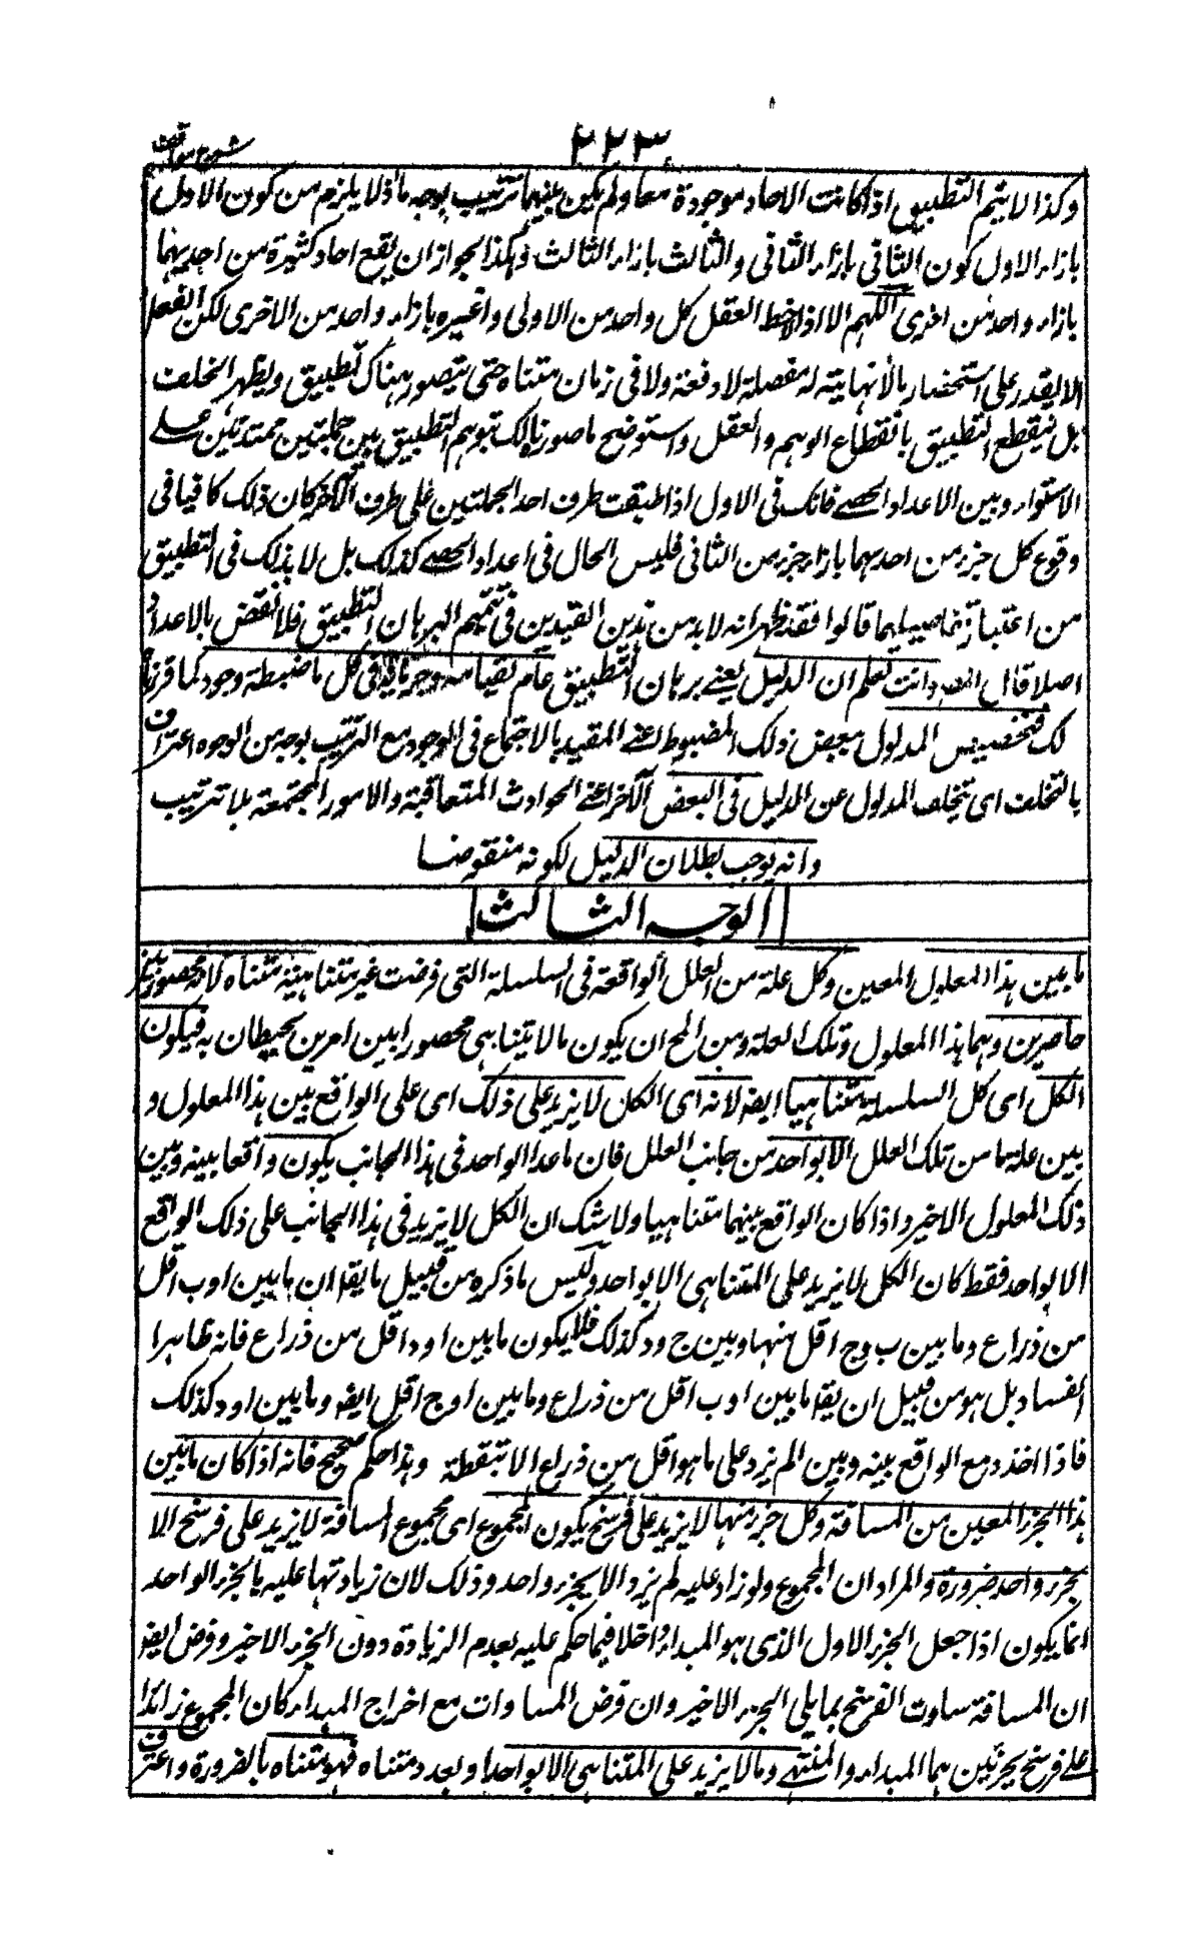 ۲۲۳
شرح مواقف
وكذا لا يتم التطبيق اذا كانت الاحاد موجودة معا ولم يكن بينها ترتيب بوجه ما اذ لا يلزم من كون الاول
بازاء الاول كون الثانى بازاء الثانى والثالث بازاء الثالث وهكذا لجواز ان يقع احاد كثيرة من احديهما
بازاء واحد من اخرى اللهم الا اذا لاحظ العقل كل واحد من الاولى واعتبره بازاء واحد من الاخرى لكن العقل
لا يقدر على استحضار ما لا نهاية له مفصلة لا دفعة ولا فى زمان متناه حتى يتصور هناك تطبيق ويظهر الخلف
بل ينقطع التطبيق بانقطاع الوهم والعقل واستوضح ما صورناه لك بتوهم التطبيق بين جملتين ممتدتين على
الاستواء وبين الاعداد الحصى فانك فى الاول اذا طبقت طرف احد الجملتين على طرف الاخر كان ذلك كافيا فى
وقوع كل جزء من احديهما بازاء جزء من الثانى فليس الحال فى اعداد الحصى كذلك بل لا بد لك فى التطبيق
من اعتبار تفاصيلها قالوا فقد ظهر انه لا بد من هذين القيدين فى تتميم البرهان التطبيق فلا نقض بالاعداد
اصلا قال المصد وانت تعلم ان الدليل يعنى برهان التطبيق عام لقيامه وجريانه فى كل ما ضبطه وجود كما قررنا
لك فتخصيص المدلول ببعض ذلك المضبوط اعنى المقيد بالاجتماع فى الوجود مع الترتيب بوجه من الوجوه اعتراف
بالتخلف اى تخلف المدلول عن الدليل فى البعض الاخر اعنى الحوادث المتعاقبة والامور المجتمعة بلا ترتيب
وانه يوجب بطلان الدليل لكونه منقوضا
الوجه الثالث
ما بين هذا المعلول المعين وكل علة من العلل الواقعة فى السلسلة التى فرضت غير متناهية متناه لانه محصور بين
حاصرين وهما هذا المعلول وتلك العلة ومن المح ان يكون ما لا يتناهى محصورا بين امرين يحيطان به فيكون
الكل اى كل السلسلة متناهيا ايضا لانه اى الكل لا يزيد على ذلك اى على الواقع بين هذا المعلول و
بين علة ما من تلك العلل الا بواحد من جانب العلل فان ما عدا الواحد فى هذا الجانب يكون واقعا بينه وبين
ذلك المعلول الاخير واذا كان الواقع بينهما متناهيا ولا شك ان الكل لا يزيد فى هذا الجانب على ذلك الواقع
الا بواحد فقط كان الكل لا يزيد على المتناهى الا بواحد وليس ما ذكره من قبيل ما يقا ان ما بين ا و ب اقل
من ذراع وما بين ب و ج اقل منها وبين ج و د كذلك فلا يكون ما بين ا و د اقل من ذراع فانه ظاهر ا
لفساد بل هو من قبيل ان يقا ما بين ا و ب اقل من ذراع وما بين ا و ج اقل ايضا وما بين ا و د كذلك
فاذا اخذ د مع الواقع بينه وبين ا لم يزد على ما هو اقل من ذراع الا بنقطة وهذا حكم صحيح فانه اذا كان ما بين
هذا الجزء المعين من المسافة وكل جزء منها لا يزيد على فرسخ يكون المجموع اى مجموع المسافة لا يزيد على فرسخ الا
بجزء واحد ضرورة والمراد ان المجموع ولو زاد عليه لم يزد الا بجزء واحد وذلك لان زيادتها عليه بالجزء الواحد
انما يكون اذا جعل الجزء الاول الذى هو المبداء داخلا فيما حكم عليه بعدم الزيادة دون الجزء الاخير وفرض ايضا
ان المسافة ساوت الفرسخ بما يلى الجزء الاخير وان فرض المساوات مع اخراج المبداء كان المجموع زائدا
على فرسخ بجزئين هما المبداء والمنتهى وما لا يزيد على المتناهى الا بواحد او بعدد متناه فهو متناه بالضرورة واعترف